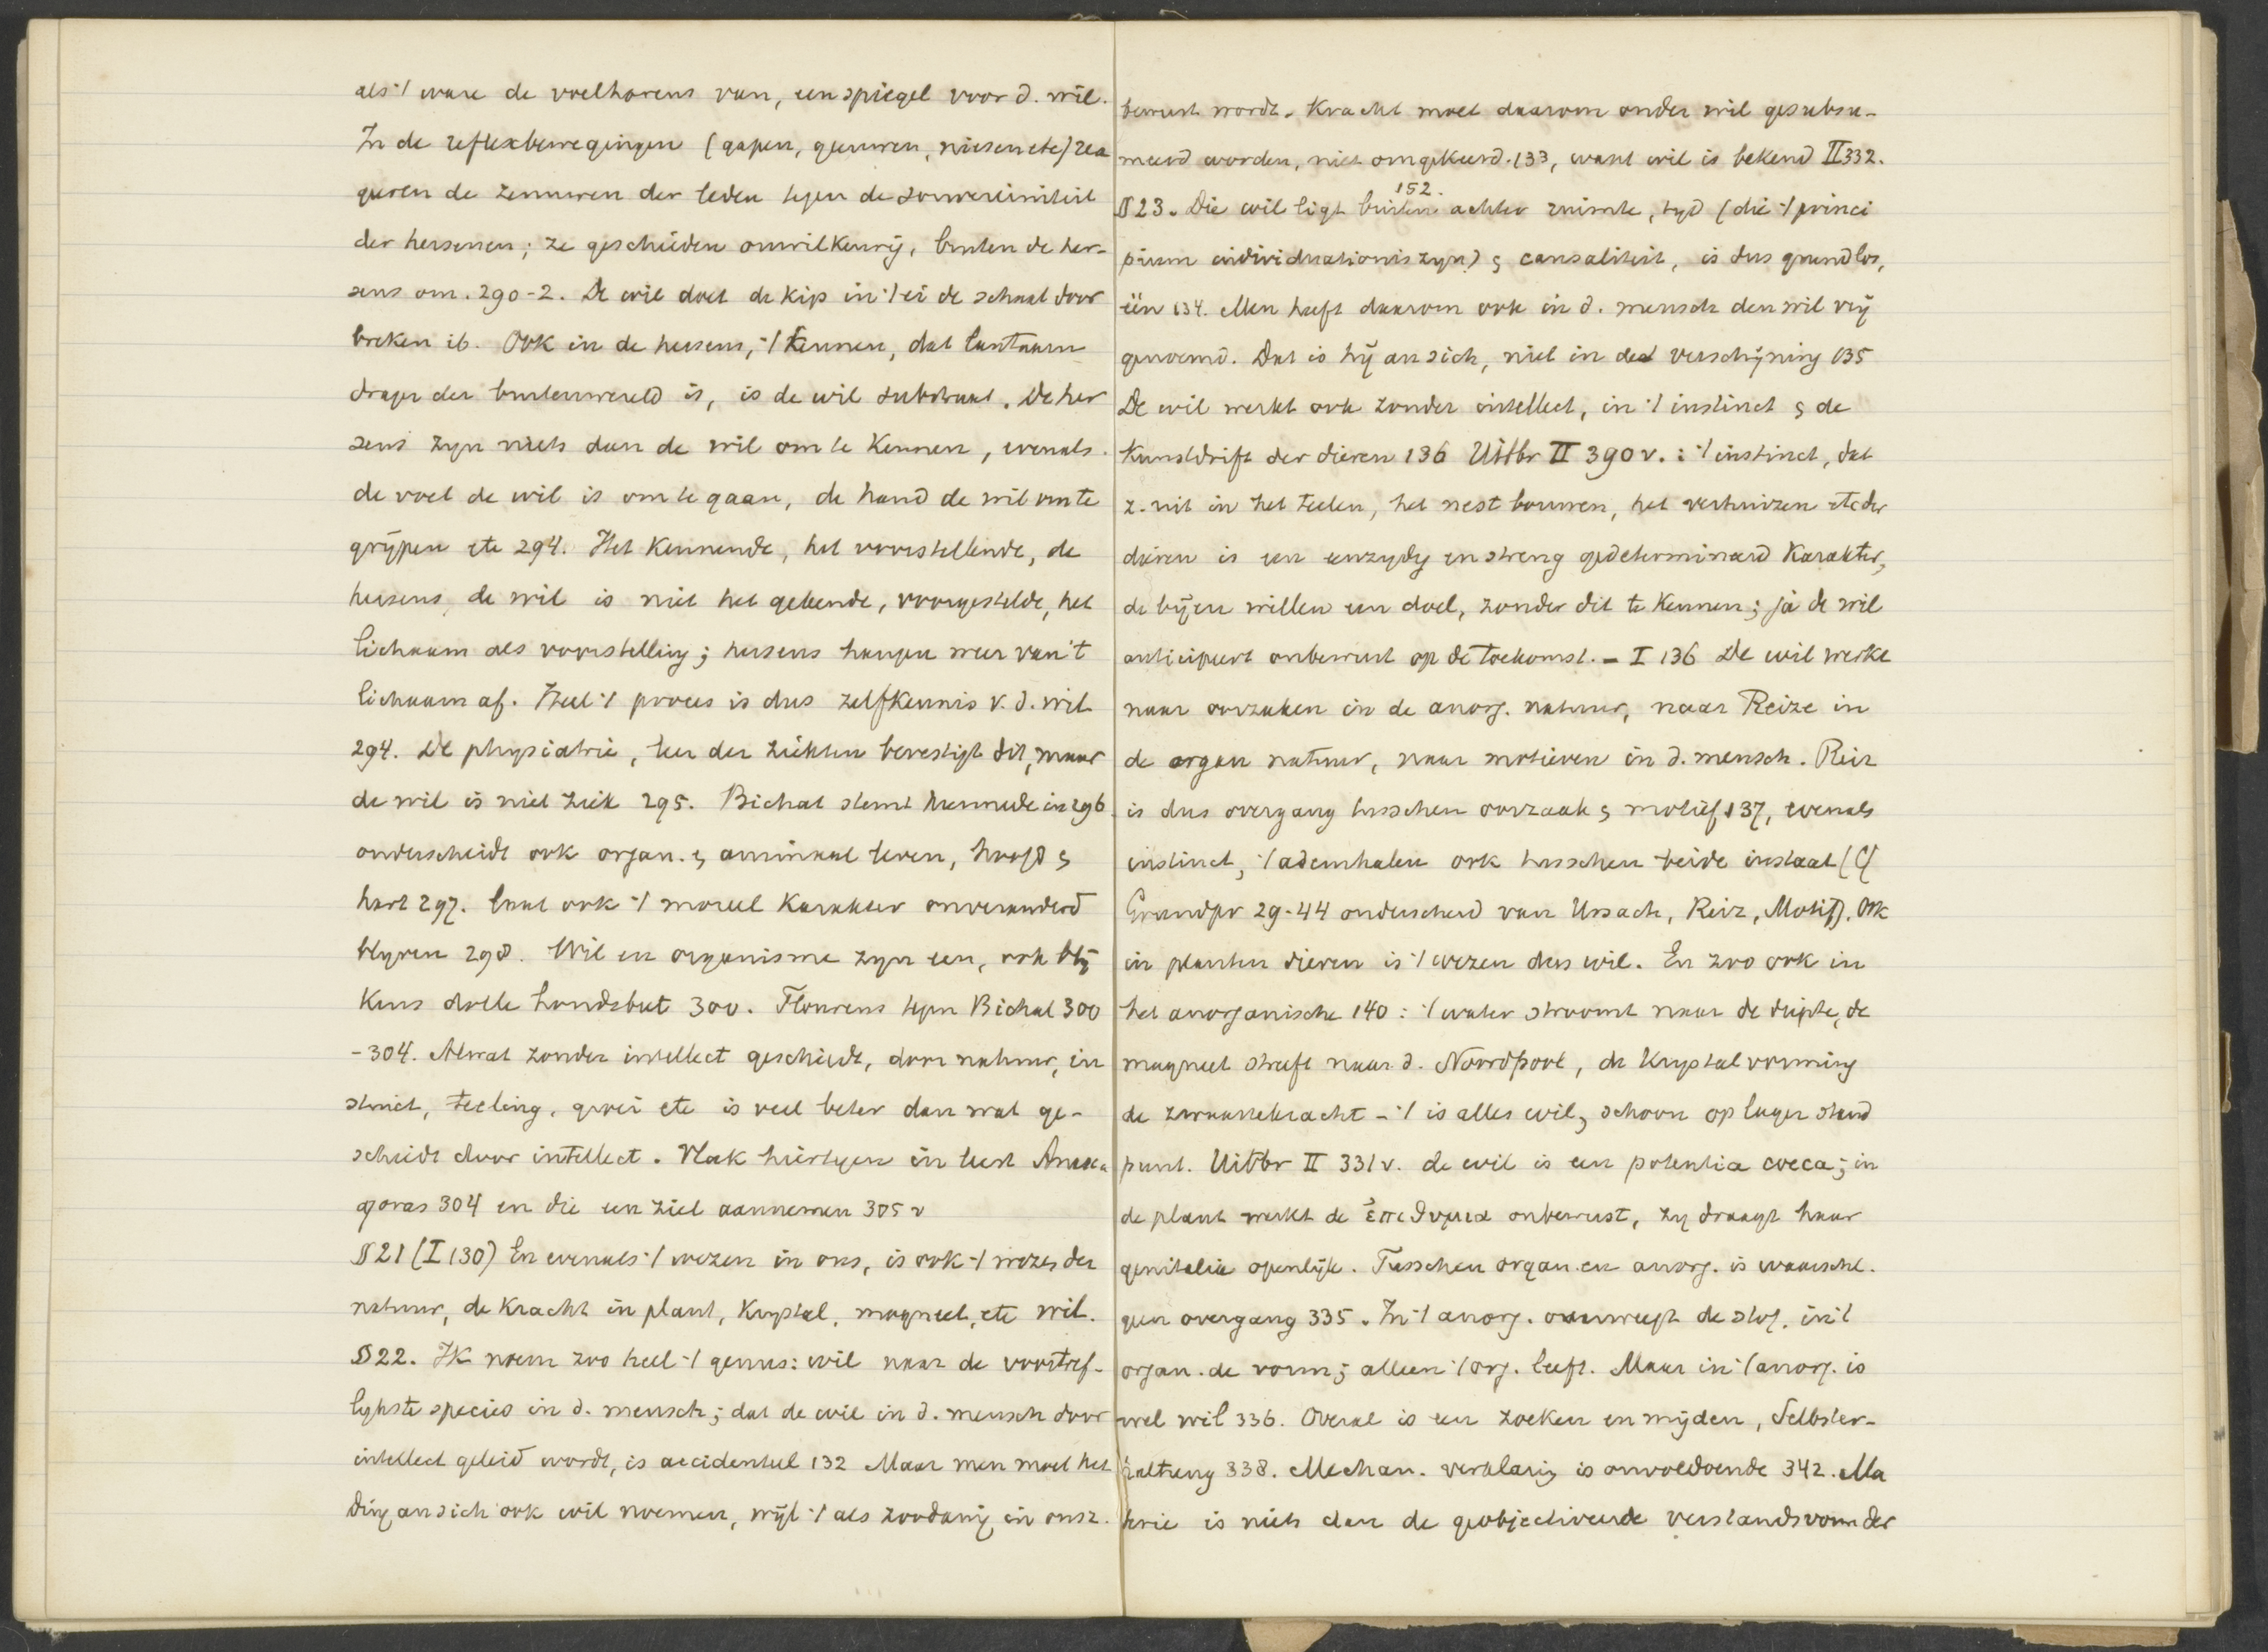 als 't ware de voelhorens van, een spiegel voor d. wil.
In de reflexbewegingen (gapen, geeuwen, niesen etc) rea
geren de zenuwen der leden tegen de souvereiniteit
der hersenen; ze geschieden onwilkeurig, buiten de her-
sens om. 290-2. De wil doet de kip in 't ei de schaal door
breken ib. Ook in de hersens, 't kennen, dat
drager der buitenwereld is, is de wil substraat. De her
sens zyn niets dan de wil om te kennen, evenals
de voet de wil is om te gaan, de hand de wil om te
grijpen etc 294. Het kennende, het voorstellende, de
hersens, de wil is niet het gekende, voorgestelde, het
lichaam als voorstelling; hersens hangen weer van 't
lichaam af. Heel 't proces is dus zelfkennis v. d. wil
294. De physiatrie, leer der ziekten bevestigt dit, maar
de wil is niet ziek 295. Bichat stemt hiermede in 296
onderscheidt ook organ. & animaal leven, hoofd &
hart 297. laat ook 't moreel karakter onveranderd
blyven 298. Wil en organisme zyn een, ook blij
kens dolle hondsbeet 300. Flourens tegen Bichat 300
-304. Alwat zonder intellect geschiedt, door natuur, in
stinct, teeling, groei etc is veel beter dan wat ge-
schiedt door intellect. Vlak hiertegen in leert Anaxa
goras 304 en die een ziel aannemen 305 v
§ 21 (I 130) En evenals 't wezen in ons, is ook 't wezen der
natuur, de kracht in plant, krystal, magneet, etc wil.
§ 22. Ik noem zoo heel 't genus: wil naar de voortref-
lykste species in d. mensch; dat de wil in d. mensch door
intellect geleid wordt, is accidenteel 132 Maar men moet het
ding an sich ook wil noemen, wijl 't als zoodanig in ons z.
bewust wordt. Kracht moet daarom onder wil gesubsu-
meerd worden, niet omgekeerd. 133, want wil is bekend II 332.
152.
§ 23. Die wil ligt buiten achter ruimte, tyd (die 't princi
pium individuationis zyn) & causaliteit, is dus grundlos,
één 134. Men heeft daarom ook in d. mensch den wil vrij
genoemd. Dat is hij an sich, niet in de verschijning 135
De wil werkt ook zonder intellect, in 't instinct & de
Kunstdrift der dieren 136 Uitbr II 390 v. : 't instinct, dat
z. uit in het teelen, het nest bouwen, het verhuizen etc der
dieren is een eenzydig en streng gedetermineerd karakter,
de bijen willen een doel, zonder dit te kennen; ja de wil
anticipeert onbewust op de toekomst. - I 136 De wil werkt
naar oorzaken in de anorg. natuur, naar Reize in
de organ natuur, naar motieven in d. mensch. Reiz
is dus overgang tusschen oorzaak & motief 137, evenals
instinct, 't ademhalen ook tusschen beide instaat (Cf
Grundpr 29-44 onderscheid van Ursach, Reiz, Motif). Ook
in planten dieren is 't wezen dus wil. En zoo ook in
het anorganische 140: 't water stroomt naar de diepte, de
magneet streeft naar d. Noordpool, de krystalvorming
de zwaartekracht - 't is alles wil, schoon op lager stand
punt. Uitbr II 331 v. de wil is een potentia coeca; in
de plant werkt de ἐπιθυμια onbewust, zy draagt haar
genitalia openlijk. Tusschen organ. en anorg. is waarschl.
geen overgang 335. In 't anorg. overweegt de stof, in 't
organ. de vorm; alleen 't org. leeft. Maar in 't anorg. is
wel wil 336. Overal is een zoeken en mijden, Selbster-
haltung 338. Mechan. verklaring is onvoldoende 342. Ma
terie is niets dan de geobjectiveerde verstandsvorm der